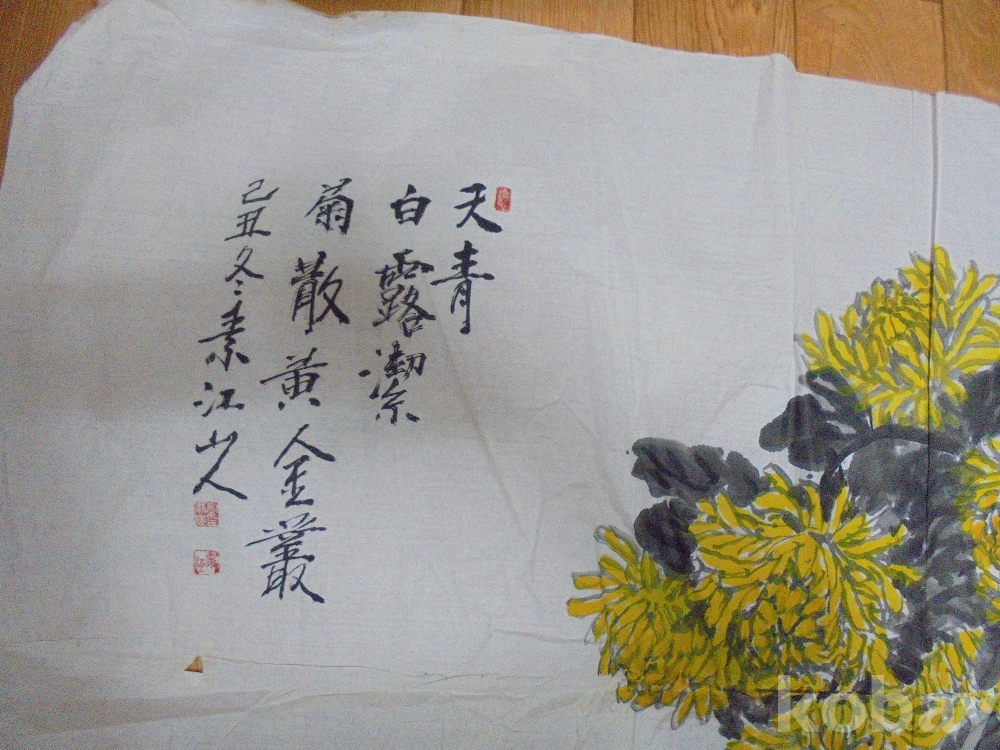 天青
白露潔
菊散黃金叢
己丑冬素江山人
kobay